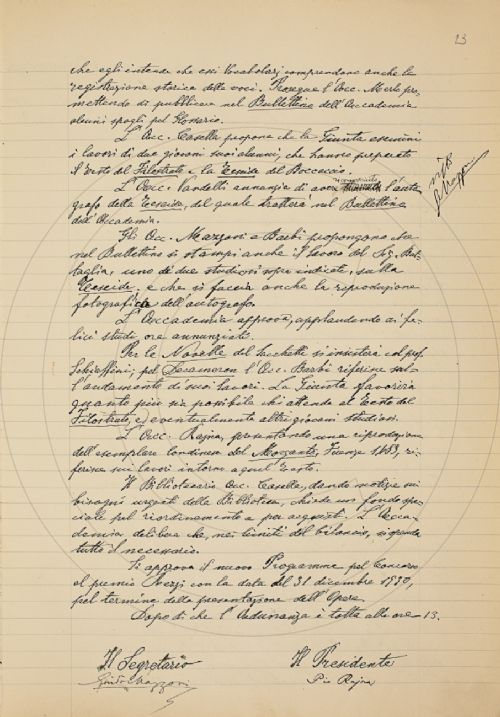 13
che egli intende che essi Vocabolarj comprendano anche la
registrazione storica delle voci. Prosegue l'Acc. Merlo pro-
mettendo di pubblicare nel Bullettino dell'Accademia
alcuni spogli pel Glossario.
L'Acc. Casella propone che la Giunta esamini
i lavori di due giovani suoi alunni, che hanno preparato
il testo del Filostrato e la Teseida del Boccaccio.
L'Acc. Vandelli annunzia di avere riconosciuto l'auto-
grafo della Teseida, del quale tratterà nel Bullettino
dell'Accademia.
Gli Acc. Mazzoni e Barbi propongono che
nel Bullettino si stampi anche il lavoro del Sig. Bat-
taglia, uno de' due studiosi sopra indicati, sulla
Teseida, e che si faccia anche la riproduzione
fotografica dell'autografo.
L'Accademia approva, applaudendo ai fe-
lici studi, ora annunziati.
Per le Novelle del Sacchetti si insisterà col prof.
Schiaffini; pel Decameron l'Acc. Barbi riferisce sul-
l'andamento di suoi lavori. La Giunta favorirà
quanto più sia possibile chi attende al testo del
Filostrato, ed eventualmente altri giovani studiosi.
L'Acc. Rajna, presentando una riproduzione
dell'esemplare londinese del Morgante, Firenze, 1483, ri-
ferisce sui lavori intorno a quel testo.
Il Bibliotecario Acc. Casella, dando notizie sui
bisogni urgenti della Biblioteca, chiede un fondo spe-
ciale pel riordinamento e per acquisti. L'Acca-
demia delibera che, nei limiti del bilancio, si spenda
tutto il necessario.
Si approva il nuovo Programma pel Concorso
al premio Rezzi con la data del 31 dicembre 1930,
pel termine della presentazione dell'Opere.
Dopo di che l'Adunanza è tolta alle ore 13.
Il Segretario Il Presidente
Guido Mazzoni Pio Rajna